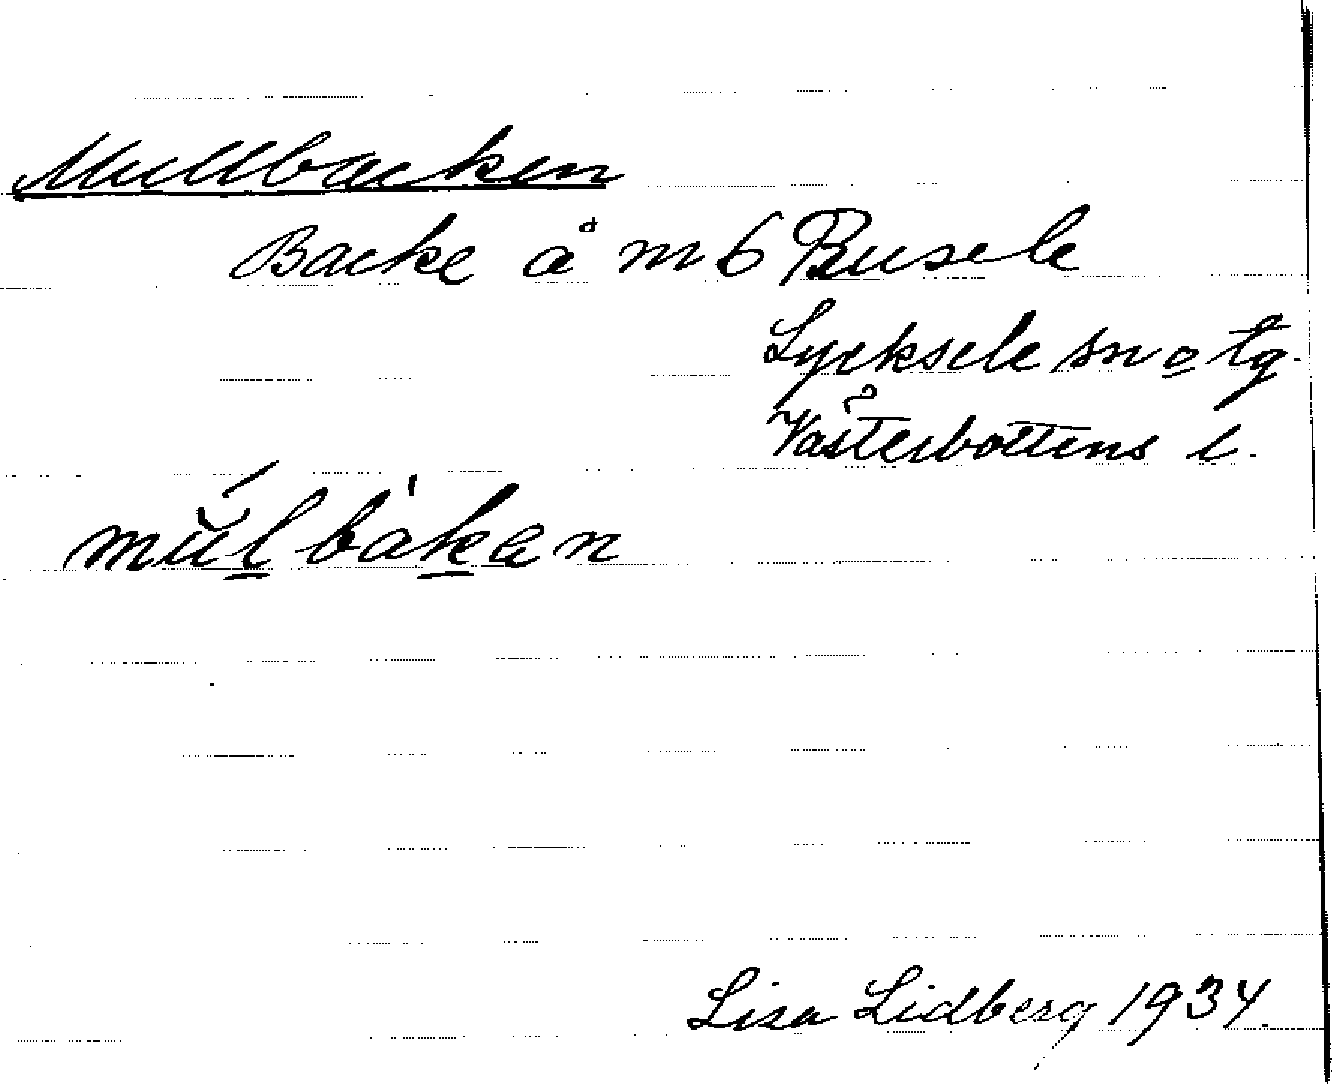 Mullbacken
Backe å m 6 Busele
Lycksele sn o tg.
Västerbottens l.
Lisa Lidberg 1934.